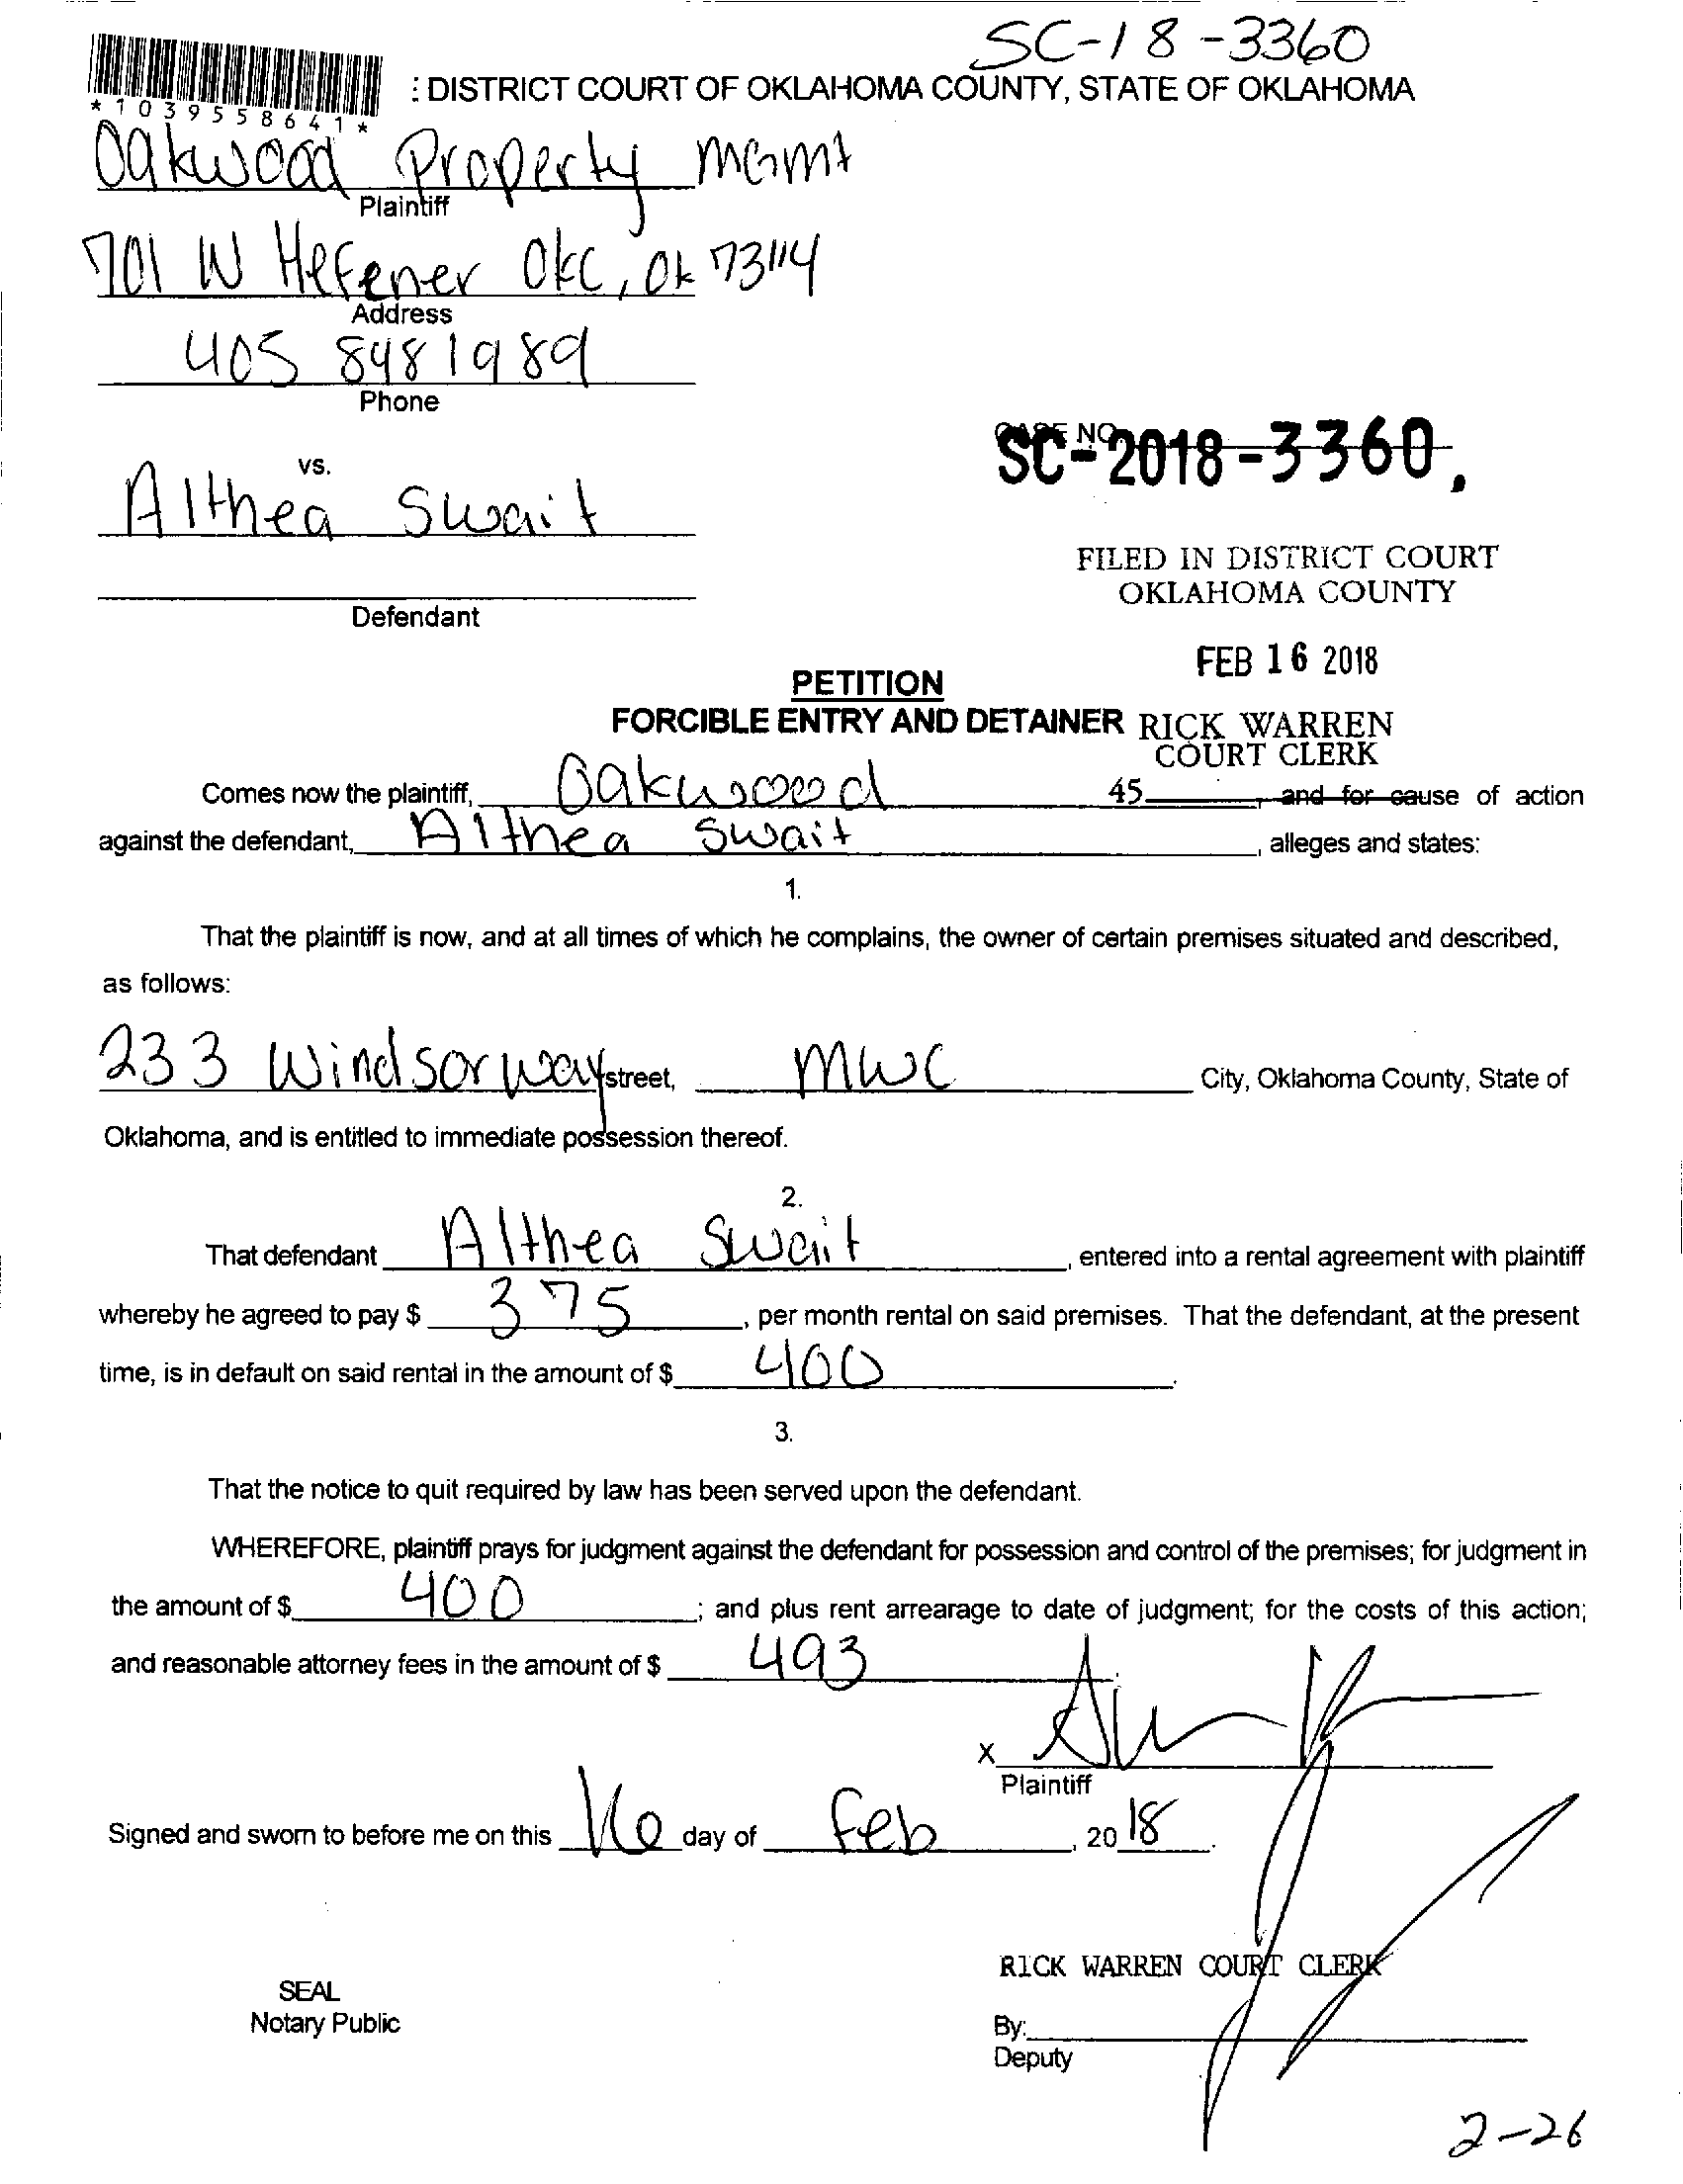 SC-18-3360
: DISTRICT COURT OF OKLAHOMA COUNTY, STATE OF OKLAHOMA
*1039558641*
Oakwood Property Mgmt
Plaintiff
701 W Hefener OKC, OK 73114
Address
405 848 1989
Phone
CASE NO.
SC-2018-3360,
vs.
Althea Swait
FILED IN DISTRICT COURT
OKLAHOMA COUNTY
Defendant
FEB 16 2018
PETITION
FORCIBLE ENTRY AND DETAINER RICK WARREN
COURT CLERK
Comes now the plaintiff, Oakwood 45 , and for cause of action
against the defendant, Althea Swait , alleges and states:
1.
That the plaintiff is now, and at all times of which he complains, the owner of certain premises situated and described,
as follows:
233 Windsor way street, MWC City, Oklahoma County, State of
Oklahoma, and is entitled to immediate possession thereof.
2.
That defendant Althea Swait , entered into a rental agreement with plaintiff
whereby he agreed to pay $ 375 , per month rental on said premises. That the defendant, at the present
time, is in default on said rental in the amount of $ 400 .
3.
That the notice to quit required by law has been served upon the defendant.
WHEREFORE, plaintiff prays for judgment against the defendant for possession and control of the premises; for judgment in
the amount of $ 400 ; and plus rent arrearage to date of judgment; for the costs of this action;
and reasonable attorney fees in the amount of $ 493
X
Plaintiff
Signed and sworn to before me on this 16 day of Feb , 20 18 .
RICK WARREN COURT CLERK
SEAL
Notary Public
By:
Deputy
2-26